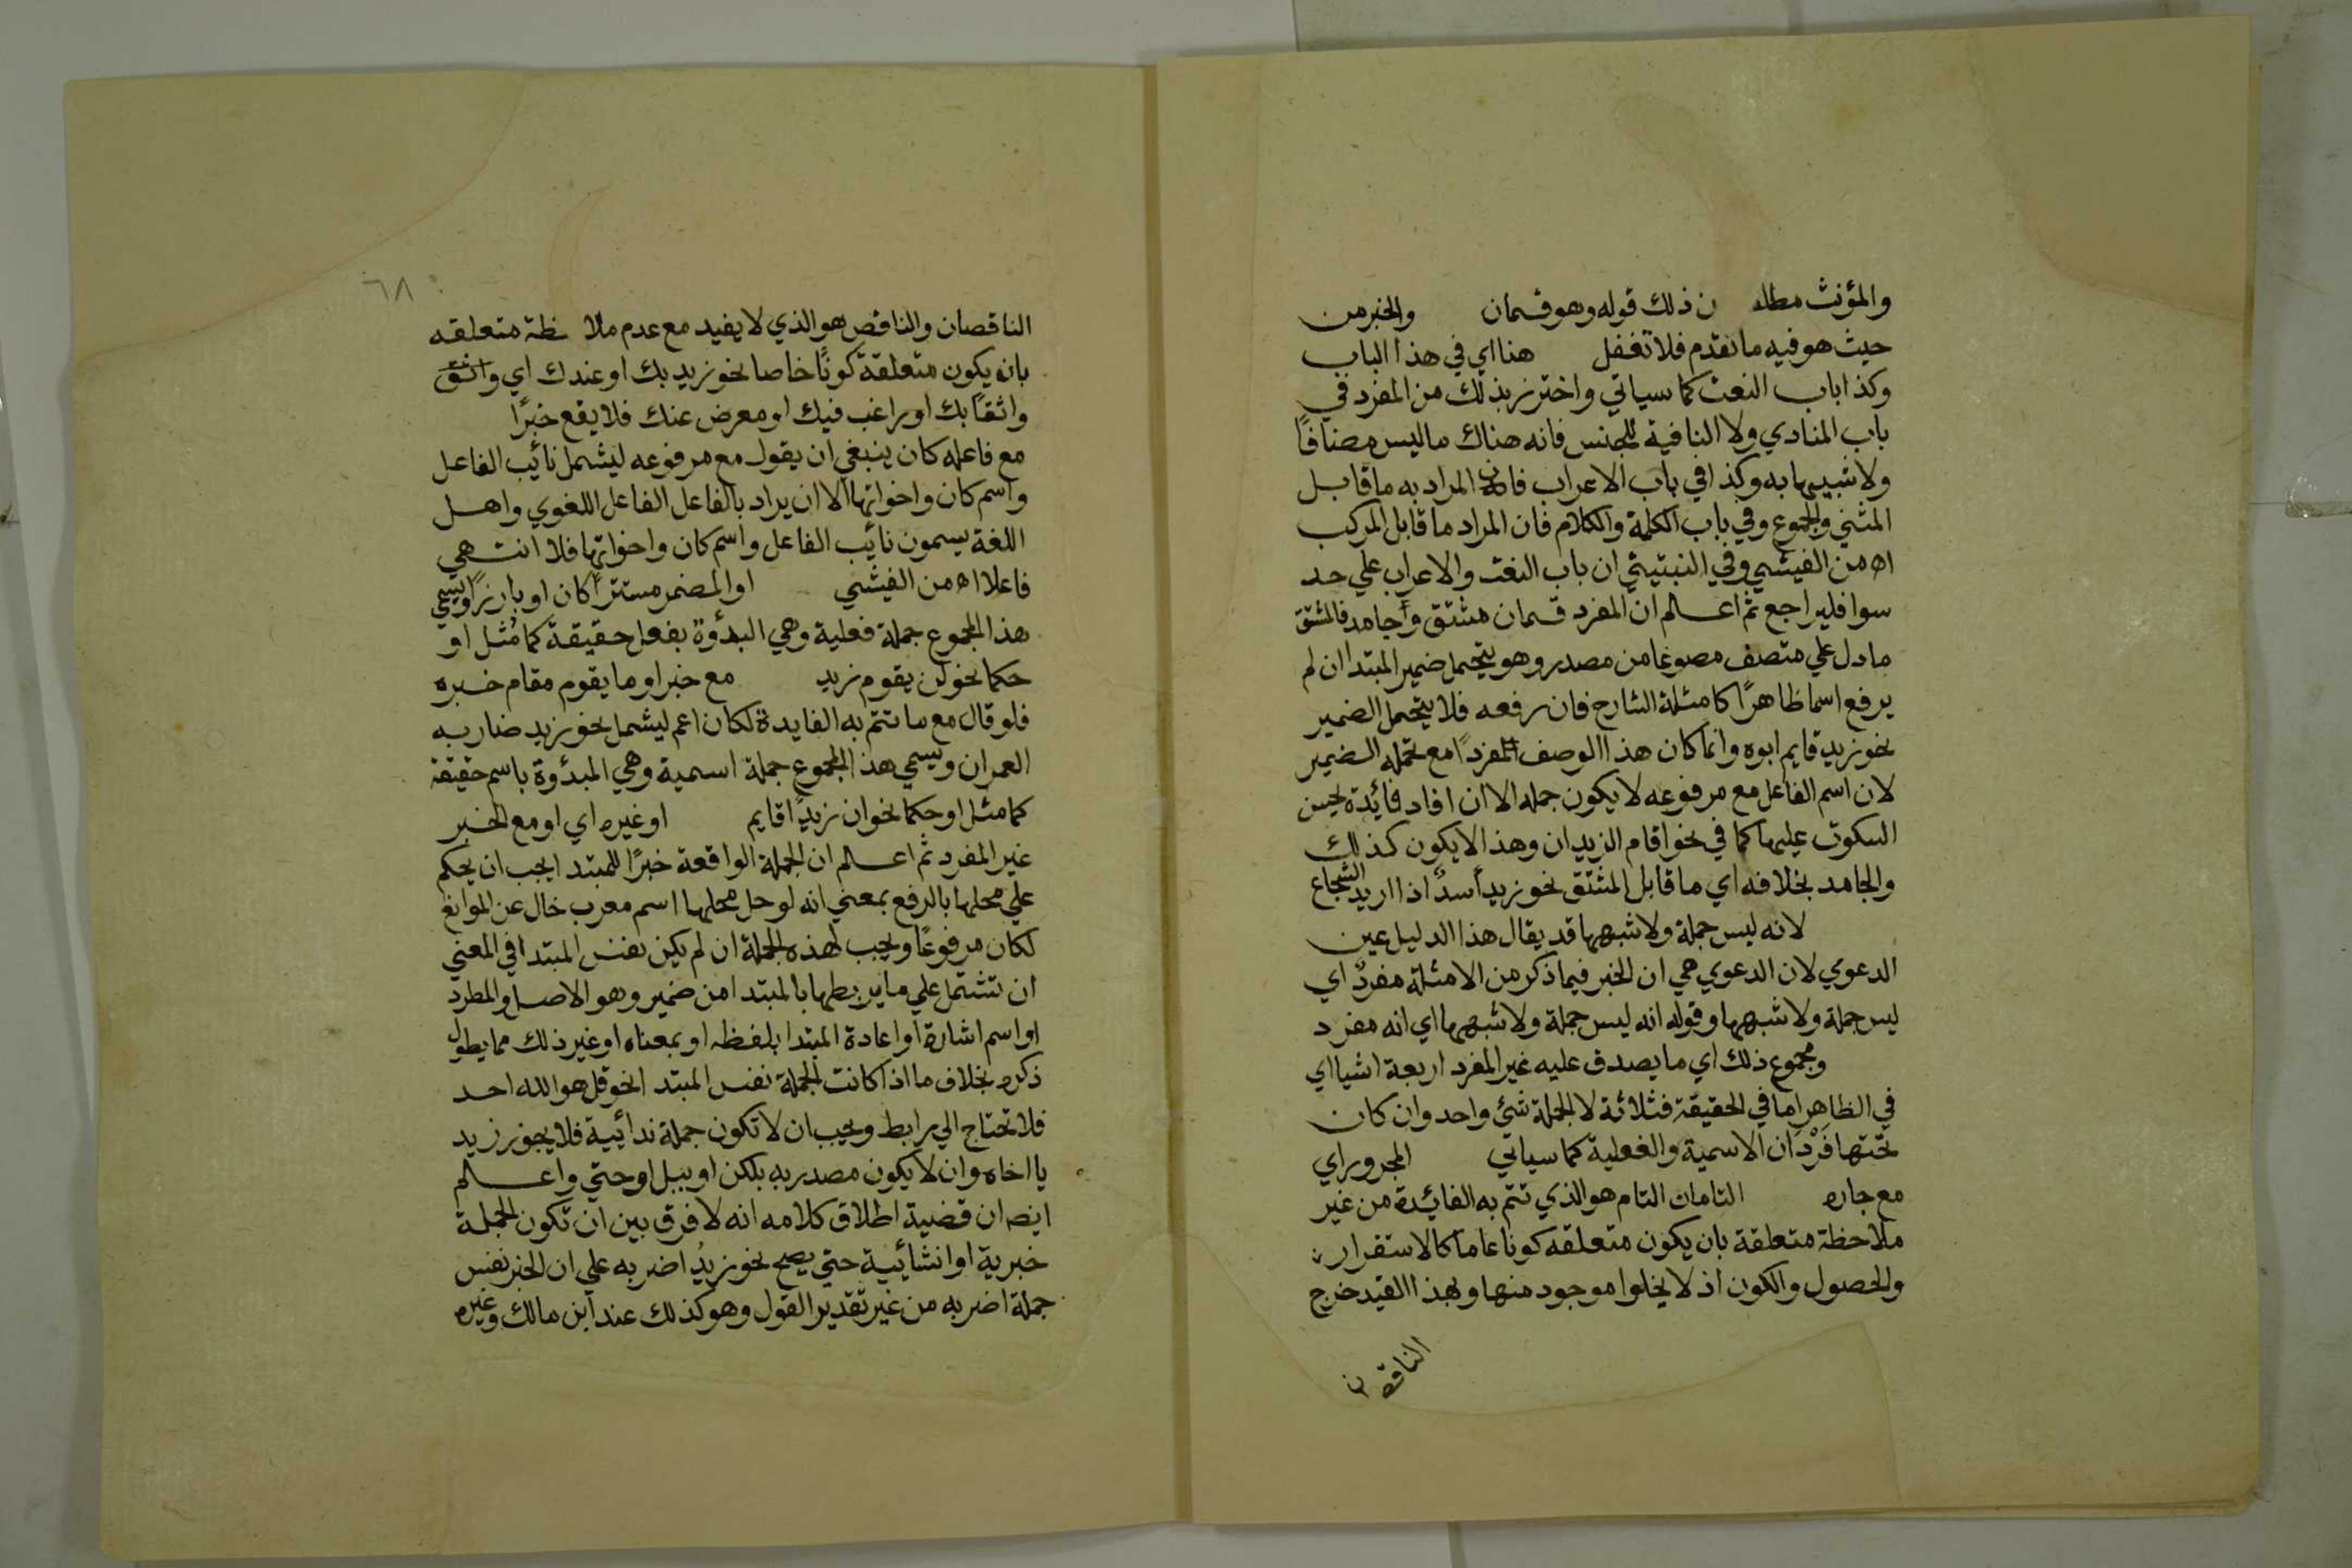 والمؤنث مطلـ ن ذلك قوله وهو قسمان والخبر من
حيث هو فيه ما تقدم فلا تغفل هنا اي في هذا الباب
وكذا باب النعت كما سياتي واحترز بذلك من المفرد في
باب المنادي ولا النافية للجنس فانه هناك ما ليس مضافًا
ولا شبيها به وكذا في باب الاعراب فان المراد به ما قابل
المثني والمجموع وفي باب الكلمة والكلام فان المراد ما قابل المركب
اه من الفيشي وفي النبتيتي ان باب النعت والاعراب علي حد
سوا فليراجع ثم اعلم ان المفرد قسمان مشتق وجامد فالمشتق
ما دل علي متصف مصوغا من مصدر وهو يتحمل ضمير المبتدا ان لم
يرفع اسما ظاهرًا كامثلة الشارح فان رفعه فلا يتحمل الضمير
نحو زيد قايم ابوه وانما كان هذا الوصف مفردًا مع تحمله الضمير
لان اسم الفاعل مع مرفوعه لا يكون جمله الا ان افاد فائدة يحسن
السكوت عليها كما في نحو اقام الزيدان وهذا لا يكون كذلك
والجامد بخلافه اي ما قابل المشتق نحو زيد أسدٌ اذا اريد الشجاع
لانه ليس جملة ولا شبهها قد يقال هذا الدليل عين
الدعوي لان الدعوي هي ان الخبر فيما ذكر من الامثلة مفردٌ اي
ليس جملة ولا شبهها وقوله انه ليس جملة ولا شبهها اي انه مفرد
ومجموع ذلك اي ما يصدق عليه غير المفرد اربعة اشيا اي
في الظاهر اما في الحقيقة فثلاثة لا الجملة شئ واحد وان كان
تحتها فَرْدَان الاسمية والفعلية كما سياتي المجرور اي
مع جاره التامان التام هو الذي تتم به الفائدة من غير
ملاحظة متعلقة بان يكون متعلقه كونا عاما كالاستقرار
والحصول والكون اذ لا يخلوا موجود منها وبهذا القيد خرج
الناقصان
٦٨
الناقصان والناقص هو الذي لا يفيد مع عدم ملا ظة متعلقه
بان يكون متعلقة كونًا خاصا نحو زيد بك او عندك اي واثق
واثقًا بك او راغب فيك او معرض عنك فلا يقع خبرًا
مع فاعله كان ينبغي ان يقول مع مرفوعه ليشمل نائب الفاعل
واسم كان واخواتها الا ان يراد بالفاعل الفاعل اللغوي واهل
اللغة يسمون نائب الفاعل واسم كان واخواتها فلا انتهي
فاعلا اه من الفيشي او المضمر مستترًا كان او بارزًا ويسمي
هذا المجموع جملة فعلية وهي البدؤة بفعل حقيقة كما مُثل او
حكما نحو لن يقوم زيد مع خبر او ما يقوم مقام خبره
فلو قال مع ما تتم به الفايدة لكان اعم ليشمل نحو زيد ضاربه
العمران ويسمي هذا المجموع جملة اسمية وهي المبدؤة باسم حقيقة
كما مثل او حكما نحو ان زيدًا قايم او غيره اي او مع الخبر
غير المفرد ثم اعلم ان الجملة الواقعة خبرًا للمبتدا يجب ان يحكم
علي محلها بالرفع بمعني انه لو حل محلها اسم معرب خال عن الموانع
لكان مرفوعًا ويجب لهذه الجملة ان لم يكن نفس المبتدا في المعني
ان تشتمل علي ما يربطها بالمبتدا من ضمير وهو الاصل والمطرد
او اسم اشارة او اعادة المبتدا بلفظه او بمعناه او غير ذلك مما يطول
ذكره بخلاف ما اذا كانت الجملة نفس المبتدا نحو قل هو الله احد
فلا تحتاج الي رابط ويجب ان لا تكون جملة ندائيية فلا يجوز زيد
يا اخاه وان لا يكون مصدريه بلكن او ببل او حتي واعلم
ايضا ان قضية اطلاق كلامه انه لا فرق بين ان تكون الجملة
خبرية او انشائيية حتي يصح نحو زيدُ اضربه علي ان الخبر نفس
جملة اضربه من غير تقدير القول وهو كذلك عند ابن مالك وغيره